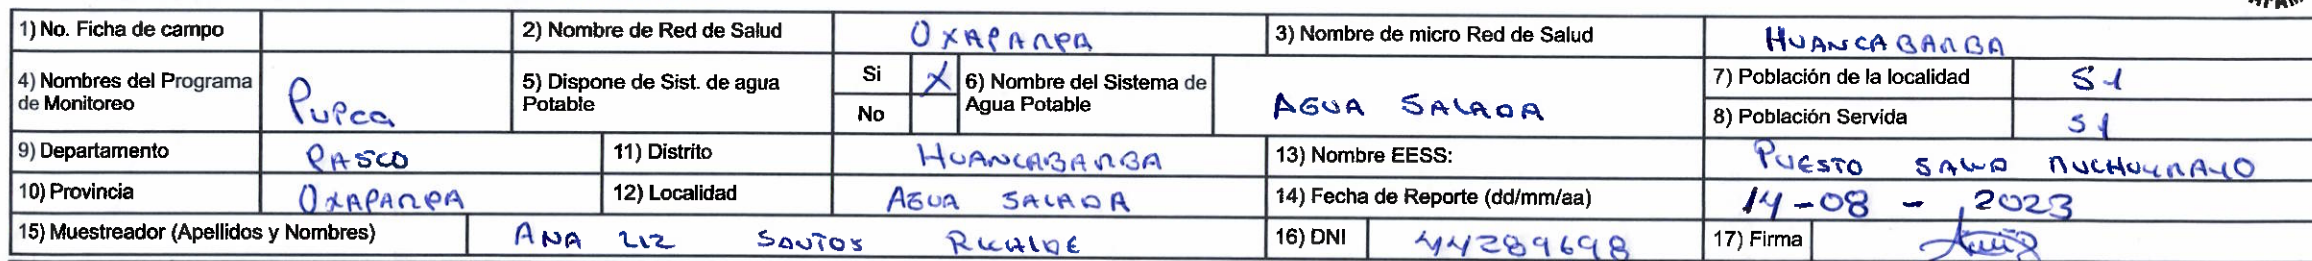 1) No. Ficha de campo 2) Nombre de Red de Salud OXAPAMPA 3) Nombre de micro Red de Salud HUANCABAMBA
4) Nombres del Programa de Monitoreo Pupca 5) Dispone de Sist. de agua Potable Si X No 6) Nombre del Sistema de Agua Potable AGUA SALADA 7) Población de la localidad 51
8) Población Servida 51
9) Departamento PASCO 11) Distrito HUANCABAMBA 13) Nombre EESS: PUESTO SALUD MUCHUYMAYO
10) Provincia OXAPAMPA 12) Localidad AGUA SALADA 14) Fecha de Reporte (dd/mm/aa) 14-08-2023
15) Muestreador (Apellidos y Nombres) ANA LIZ SANTOS RICALDE 16) DNI 44289698 17) Firma